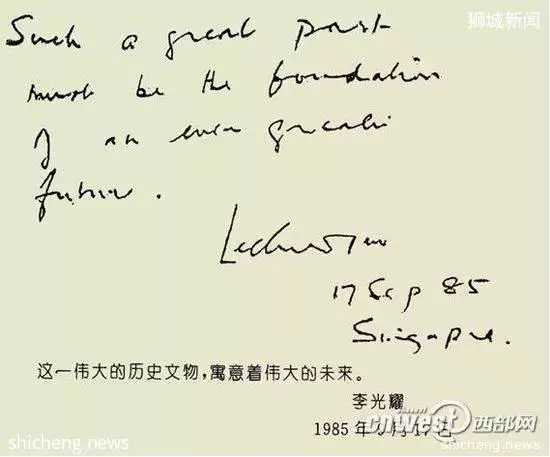 狮城新闻
Such a great past
must be the foundation
of an even greater
future.
Lee Kuan Yew
17 Sep 85
Singapore.
这一伟大的历史文物，寓意着伟大的未来。
李光耀
1985年9月17日
cnwest 西部网
shicheng.news
shicheng.news